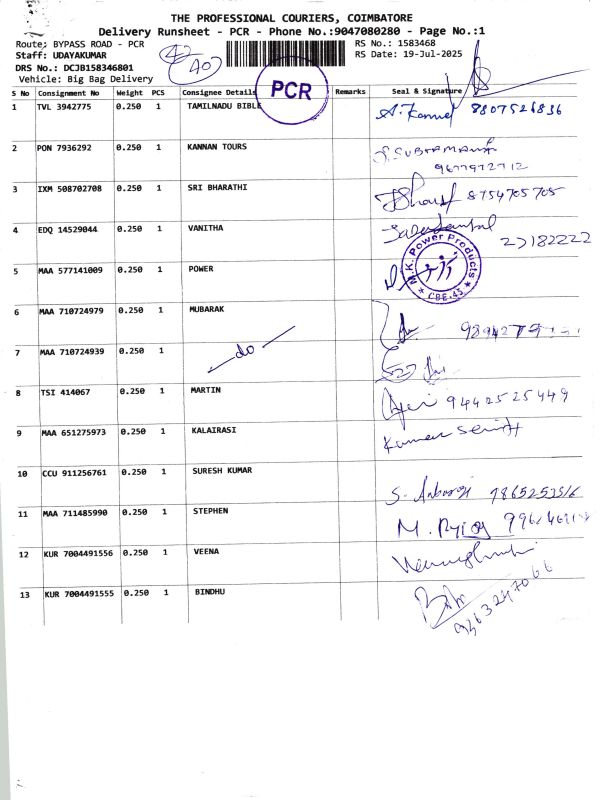 THE PROFESSIONAL COURIERS, COIMBATORE
Delivery Runsheet - PCR - Phone No.:9047080280 - Page No.:1
Route: BYPASS ROAD - PCR
RS No.: 1583468
Staff: UDAYAKUMAR
RS Date: 19-Jul-2025
DRS No.: DCJB158346801
Vehicle: Big Bag Delivery
40
PCR
S No Consignment No Weight PCS Consignee Details Remarks Seal & Signature
1 TVL 3942775 0.250 1 TAMILNADU BIBLE A. Kannel 8807526836
2 PON 7936292 0.250 1 KANNAN TOURS 9677972712
3 IXM 508702708 0.250 1 SRI BHARATHI 8754705705
4 EDQ 14529044 0.250 1 VANITHA
M.K. Power Products
CBE-45
5 MAA 577141009 0.250 1 POWER
6 MAA 710724979 0.250 1 MUBARAK
7 MAA 710724939 0.250 1 -do-
8 TSI 414067 0.250 1 MARTIN 9442525449
9 MAA 651275973 0.250 1 KALAIRASI
10 CCU 911256761 0.250 1 SURESH KUMAR
11 MAA 711485990 0.250 1 STEPHEN
12 KUR 7004491556 0.250 1 VEENA
13 KUR 7004491555 0.250 1 BINDHU 9363247066